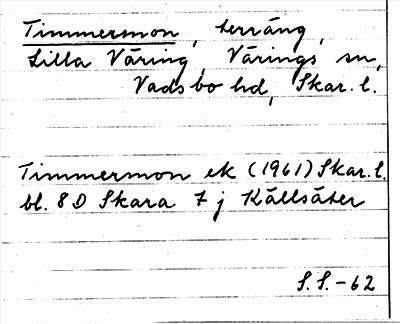 Timmermon, terräng,
Lilla Väring, Värings sn,
Vadsbo hd, Skar. l.
Timmermon ek (1961) Skar. l.
bl. 8 D Skara 7 j Källsäter
S. S. - 62